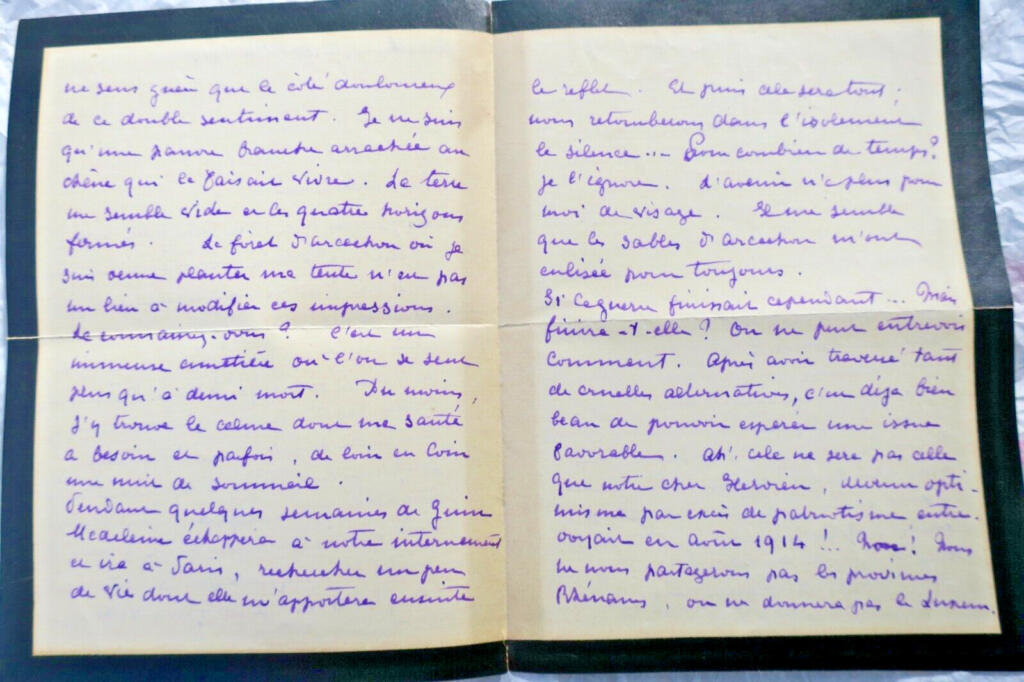 ne sens guère que le côté douloureux
de ce double sentiment. Je ne suis
qu'une pauvre branche arrachée au
chêne qui la faisait vivre. La terre
me semble vide et les quatre horizons
fermés. La forêt d'arcachon où je
suis venue planter ma tente n'est pas
un lieu à modifier ces impressions.
La connaissez-vous ? C'est un
immense cimetière où l'on se sent
plus qu'à demi mort. Du moins,
j'y trouve le calme dont ma santé
a besoin et parfois, de loin en loin
une nuit de sommeil.
Pendant quelques semaines de Juin
Madeleine échappera à notre internement
et ira à Paris, rechercher un peu
de vie dont elle m'apportera ensuite
le reflet. Et puis cela sera tout ;
nous retomberons dans l'isolement
le silence... Pour combien de temps ?
je l'ignore. L'avenir n'a plus pour
moi de visage. Il me semble
que les sables d'arcachon m'ont
enlisée pour toujours.
Si la guerre finissait cependant... Mais
finira-t-elle ? On ne peut entrevoir
comment. Après avoir traversé tant
de cruelles alternatives, c'est déjà bien
beau de pouvoir espérer une issue
favorable. Ah ! cela ne sera pas celle
que notre cher Hervieu, devenu opti-
miste par excès de patriotisme entre-
voyait en août 1914 !.. Non ! Nous
ne nous partagerons pas les provinces
Rhénanes, on ne donnera pas le Luxem-